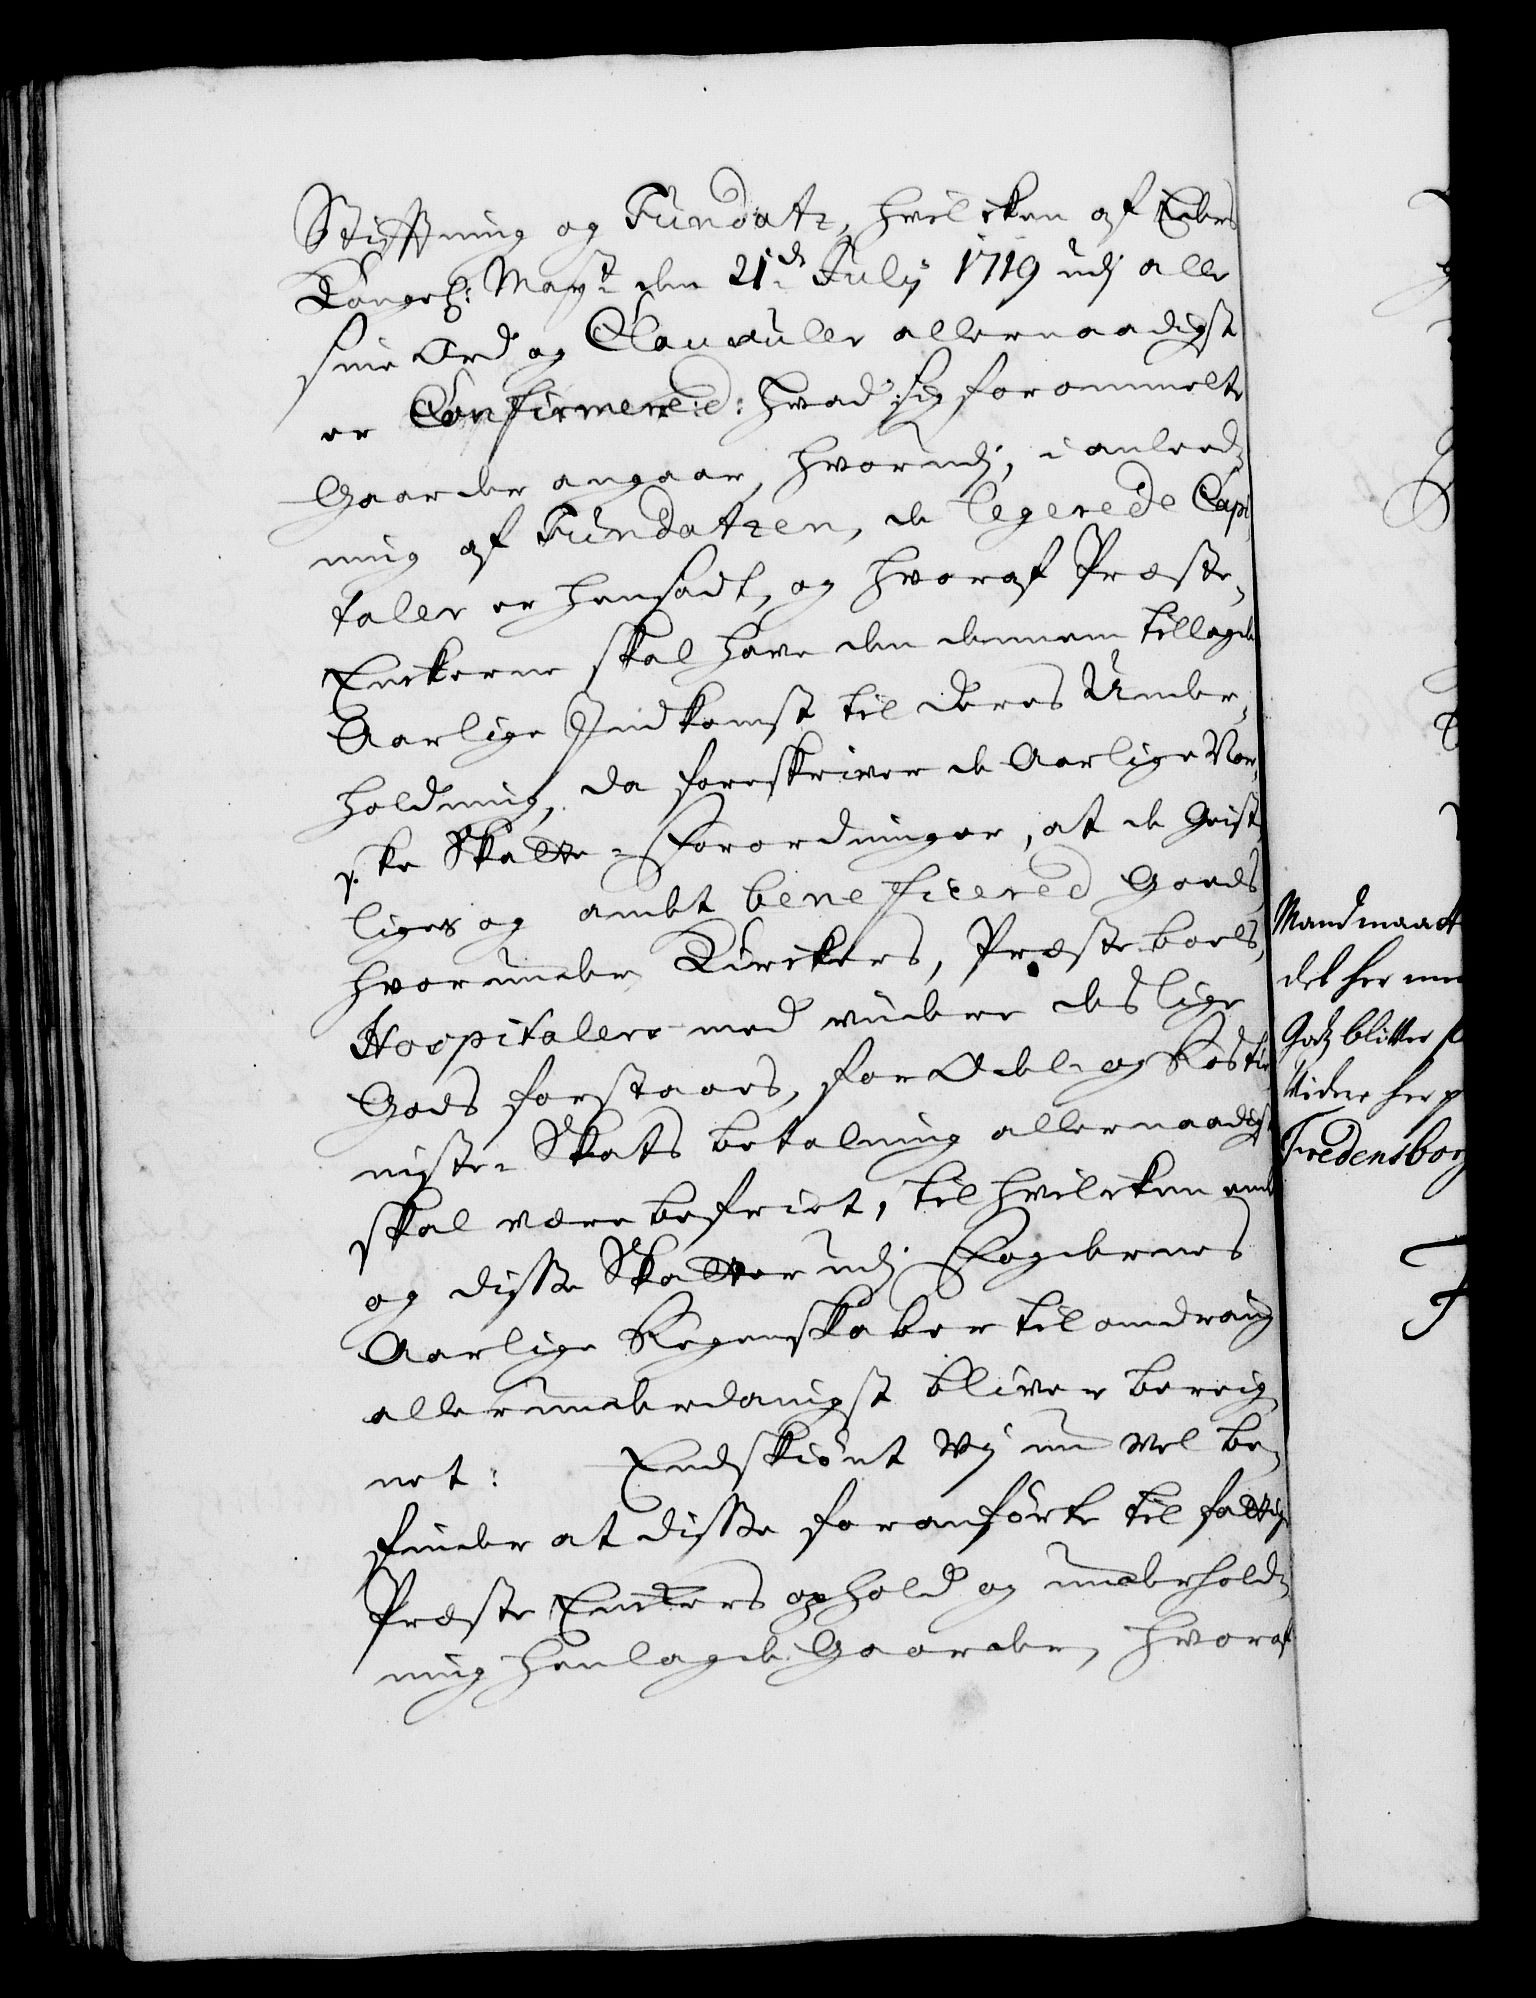 Stifftning og Fundatz, hvilcken af Eders
Kongel: Mayst: den 21de July 1719 udj alle
sine Ord og Clausuler allernaadigst
er Confirmered: hvad sig forommelte
Gaarder angaar, hvorudj, i anleed-
ning af Fundatzen, de legerede Capi
taler er hensadt, og hvoraf Præste-
Enckerne skal have den dennem tillagde
Aarlige Indkomst til deres Under-
holdning, da foreskriver de Aarlige Nor-
ske Skatte-Forordninger, at de Geist-
liges og andet beneficered Goeds,
hvorunder Kirckers, Præsteboels,
Hospitalers med videre deslige
Gods forstaaes, for Odel- og Rostie
niste-Skats betalning allernaadigst
skal være befriet, til hvilcken ende
og disse Skatter udj Fogdernes
Aarlige Regenskaber til omdrag
allerunderdanigst bliver bereig-
net: Endskiönt Vi nu vel be-
finder at disse foranförte til fattige
Præste Enckers ophold og underhold-
ning henlagde Gaarder, hvoraf
Mandmaatt
det her
Godz blitter
Videre her
Fredensborg
F